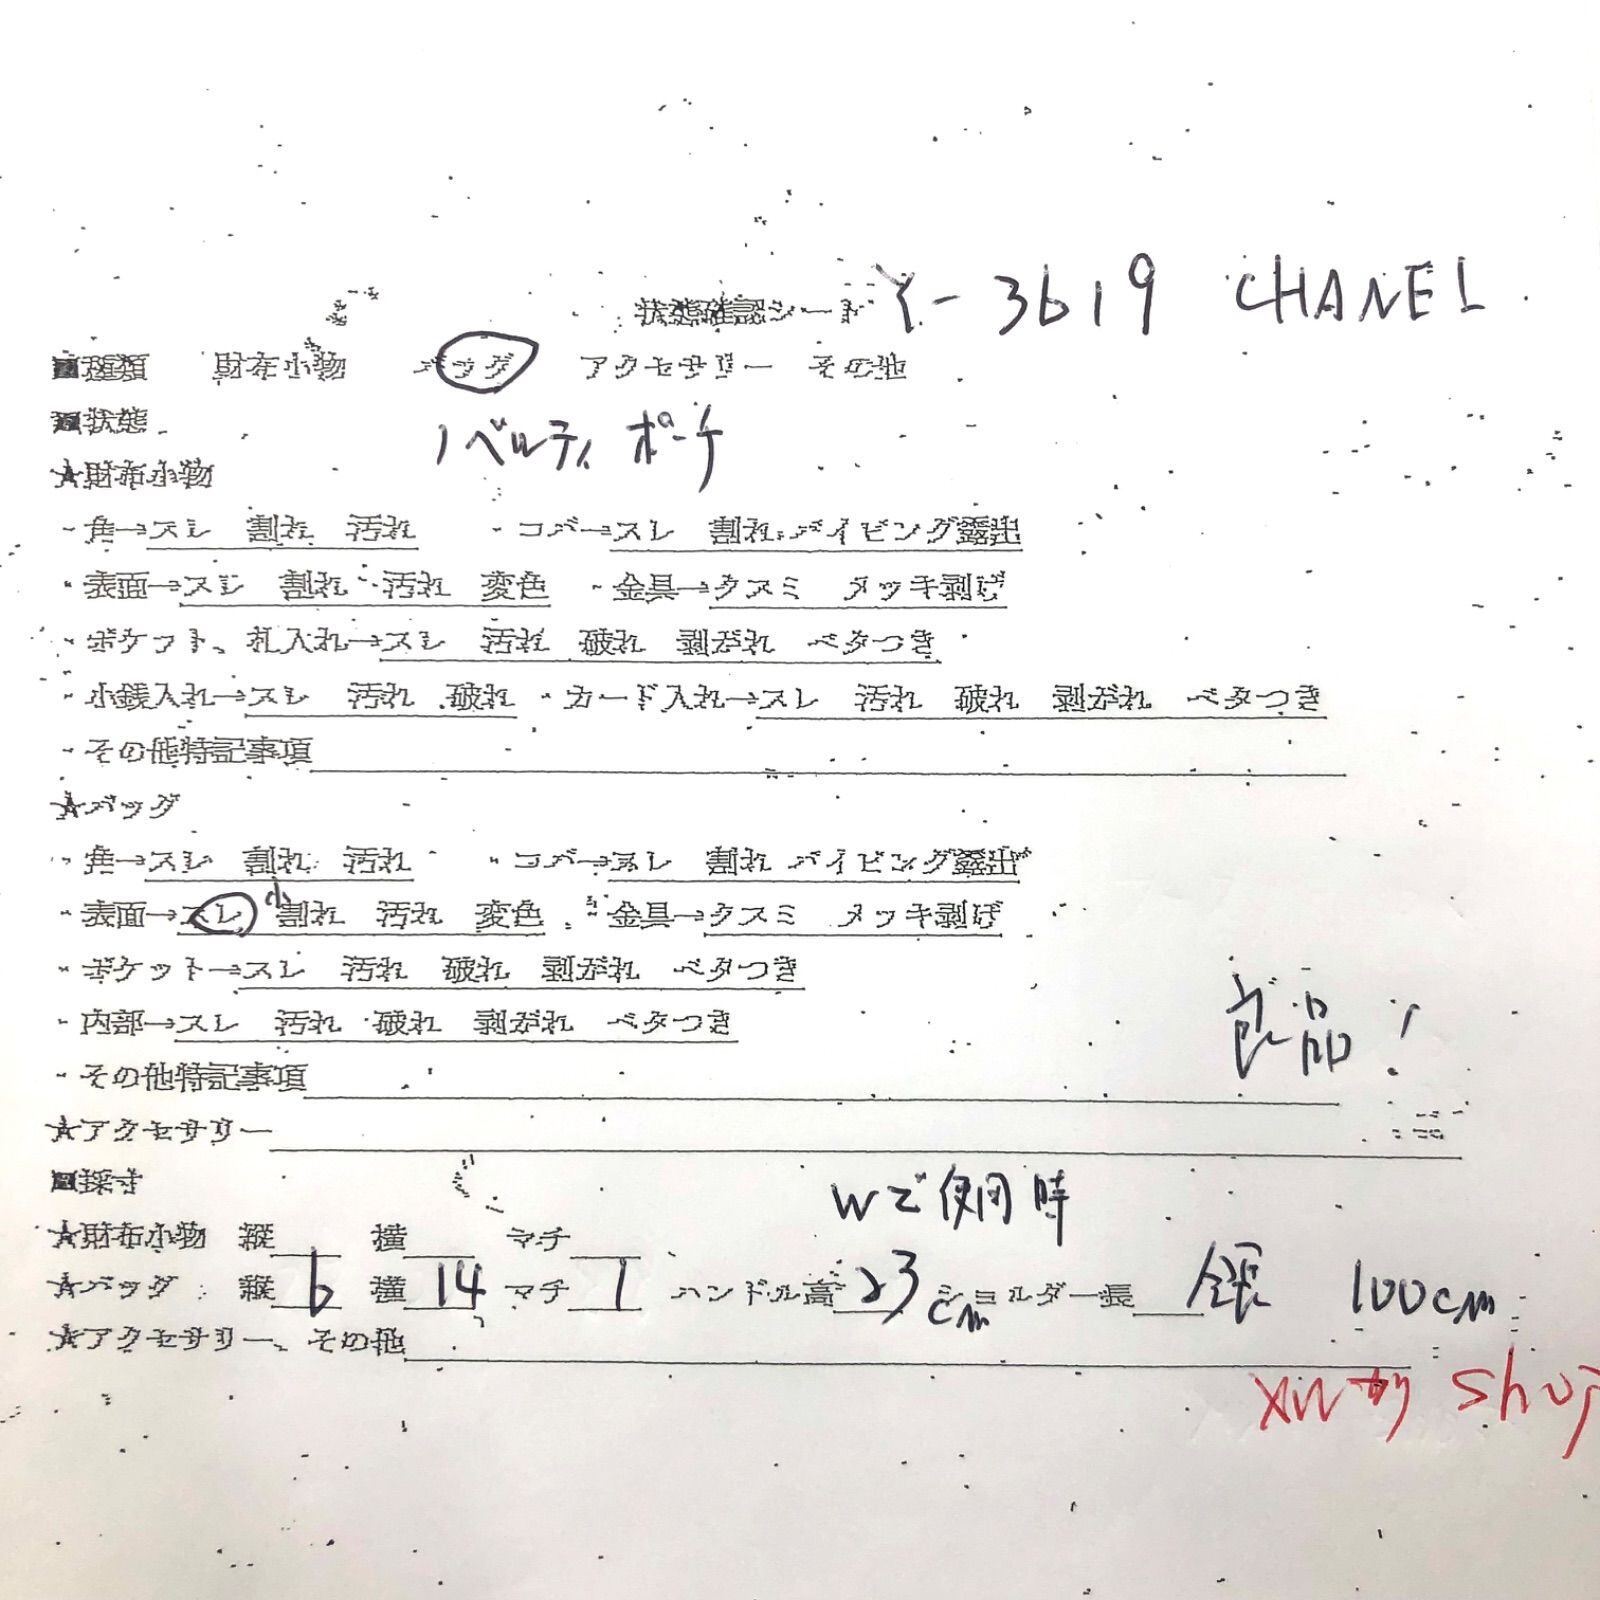 状態確認シート Y-3619 CHANEL
■種類 財布小物 バッグ アクセサリー その他
■状態 ノベルティ ポーチ
★財布小物
・角→スレ 割れ 汚れ ・コバ→スレ 割れ パイピング露出
・表面→スレ 割れ 汚れ 変色 ・金具→クスミ メッキ剥げ
・ポケット、札入れ→スレ 汚れ 破れ 剥がれ ベタつき
・小銭入れ→スレ 汚れ 破れ ・カード入れ→スレ 汚れ 破れ 剥がれ ベタつき
・その他特記事項
★バッグ
・角→スレ 割れ 汚れ ・コバ→スレ 割れ パイピング露出
・表面→スレ 小 割れ 汚れ 変色 ・金具→クスミ メッキ剥げ
・ポケット→スレ 汚れ 破れ 剥がれ ベタつき
・内部→スレ 汚れ 破れ 剥がれ ベタつき
良品!
・その他特記事項
★アクセサリー
■採寸
Wで使用時
★財布小物 縦 横 マチ
★バッグ 縦 6 横 14 マチ 1 ハンドル高 23cm ショルダー長 全長 100cm
★アクセサリー、その他
shop